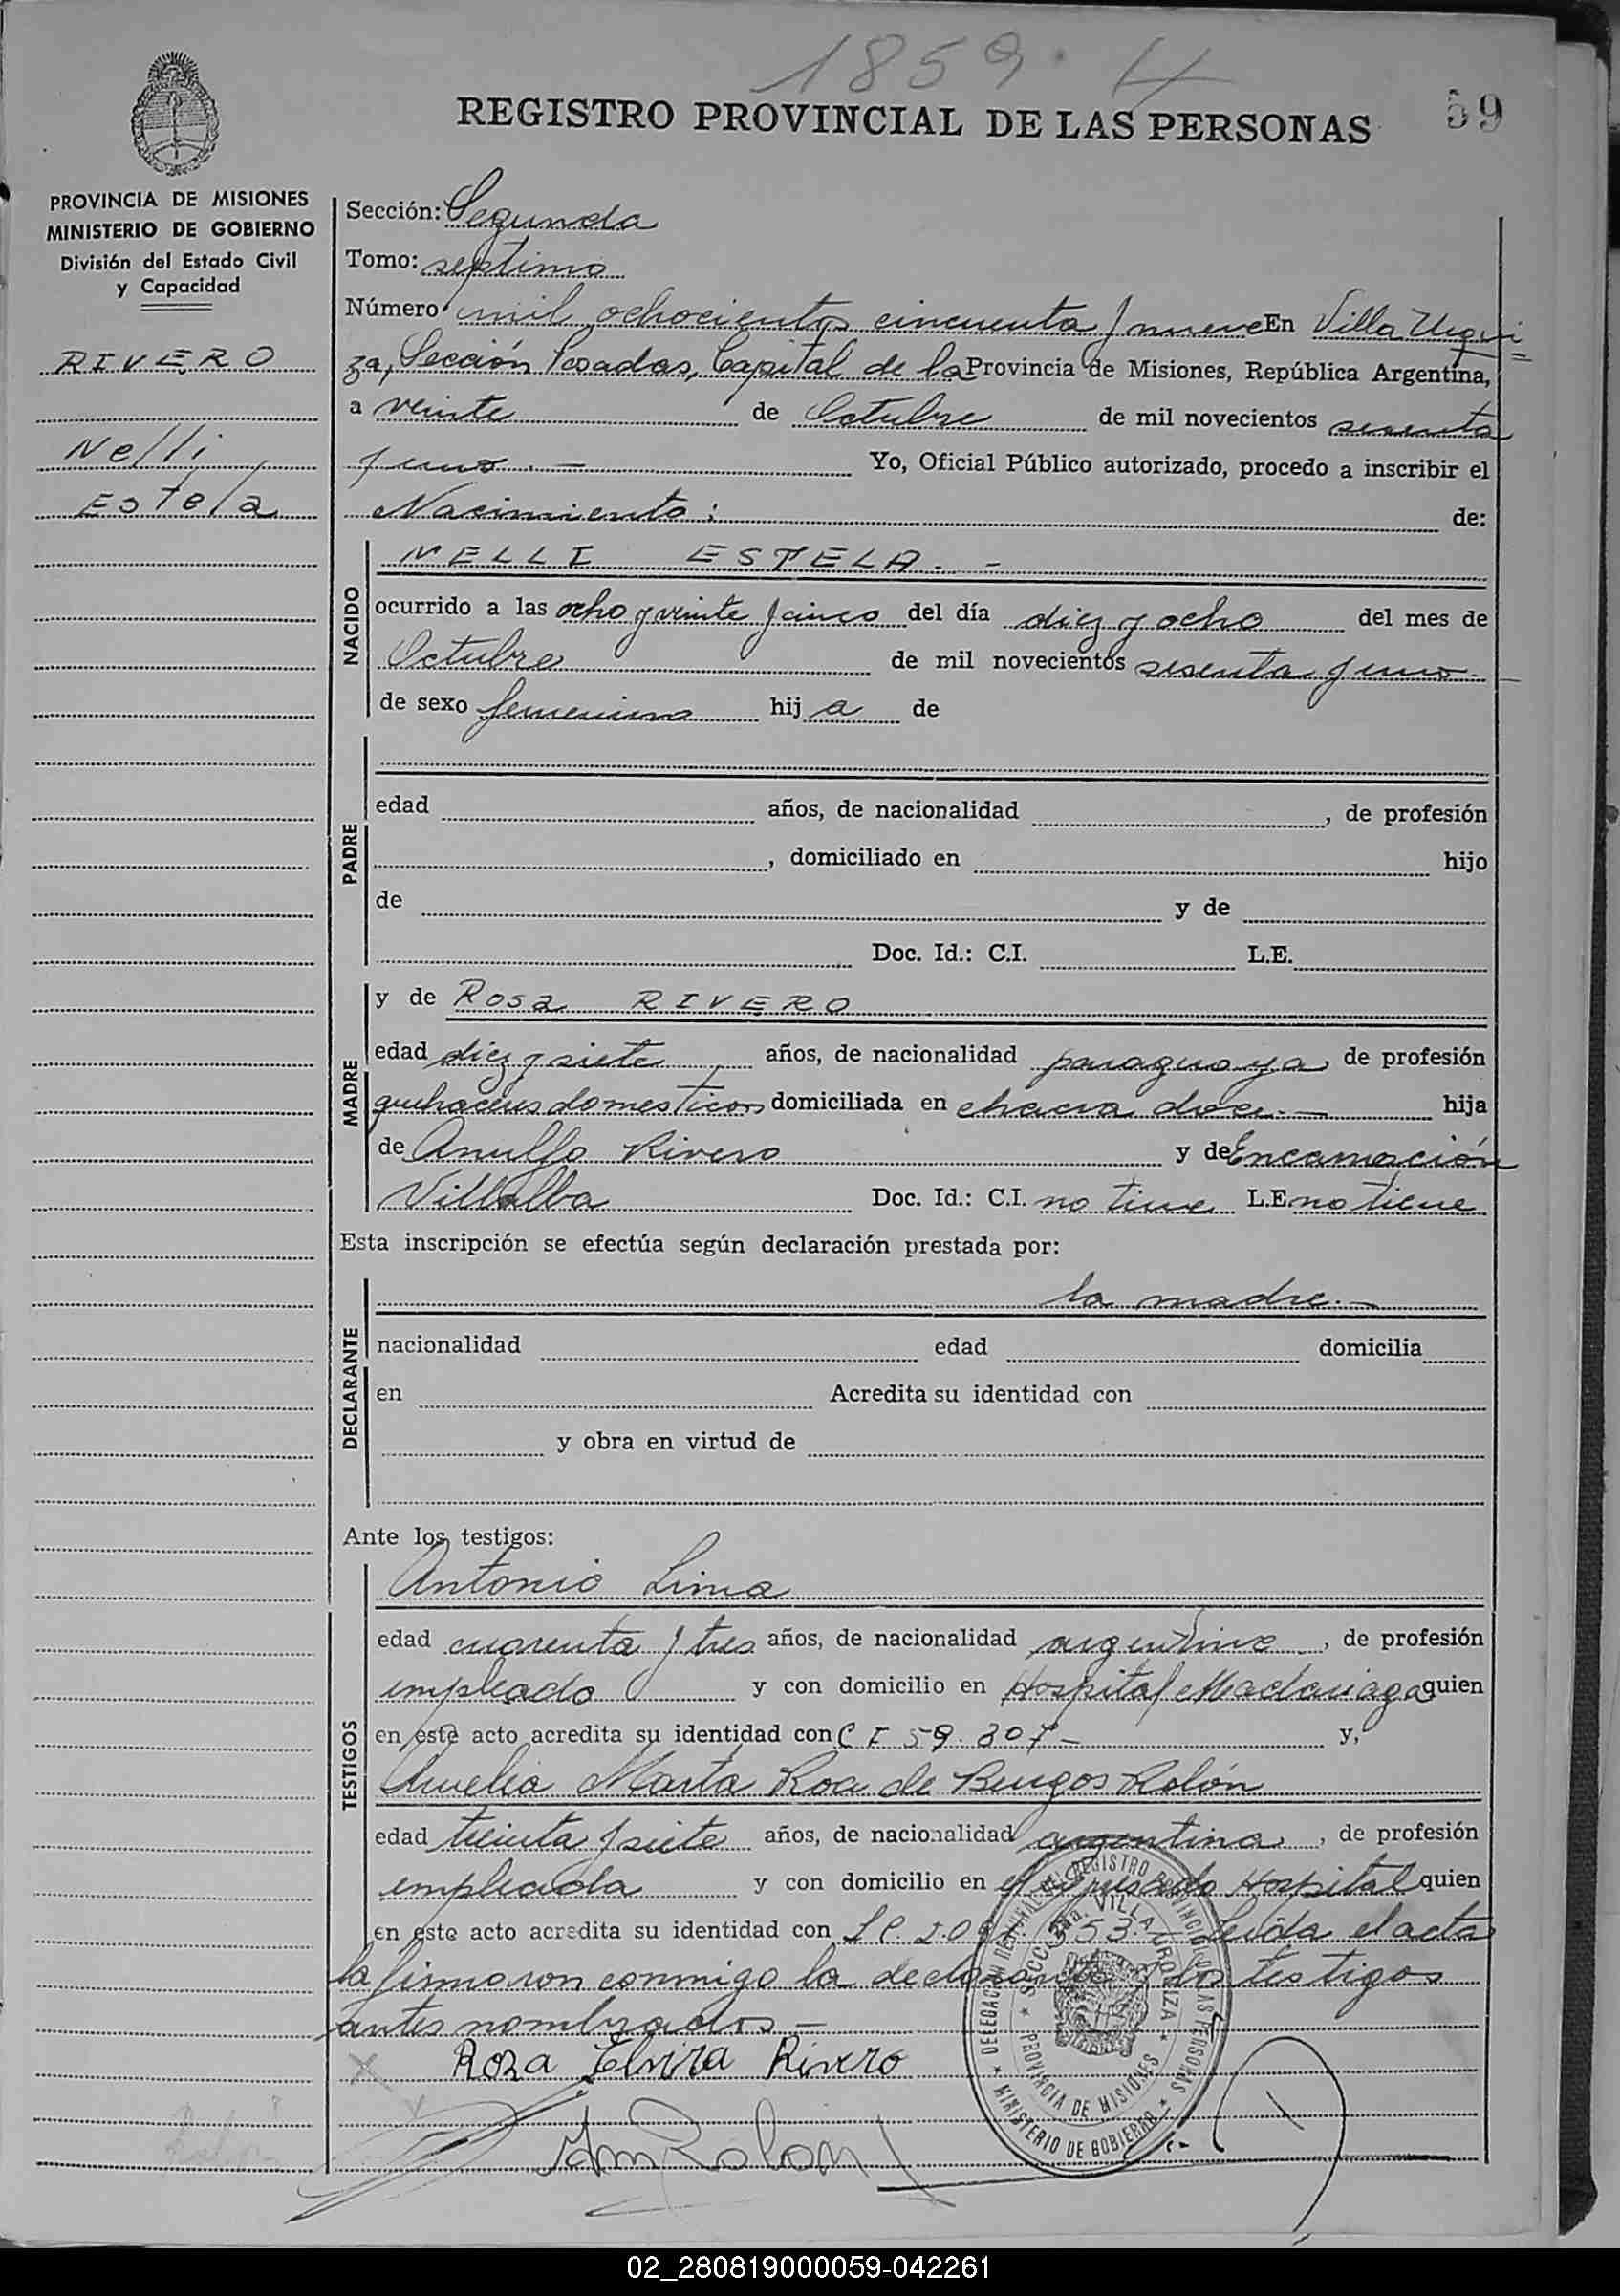 1859. H
REGISTRO PROVINCIAL DE LAS PERSONAS
59
PROVINCIA DE MISIONES
MINISTERIO DE GOBIERNO
División del Estado Civil
y Capacidad
RIVERO
Nelli
Estela
Sección: Segunda
Tomo: septimo
Número mil ochocientos cincuenta y nueve En Villa Urqui
za, Sección Posadas, Capital de la Provincia de Misiones, República Argentina,
a veinte de Octubre de mil novecientos sesenta
y uno. — Yo, Oficial Público autorizado, procedo a inscribir el
Nacimiento: de:
NACIDO
NELLI ESTELA. -
ocurrido a las ocho y veinte y cinco del día diez y ocho del mes de
Octubre de mil novecientos sesenta y uno. —
de sexo femenino hij a de
PADRE
edad años, de nacionalidad , de profesión
, domiciliado en hijo
de y de
Doc. Id.: C.I. L.E.
MADRE
y de Rosa RIVERO
edad diez y siete años, de nacionalidad paraguaya, de profesión
quehaceres domesticos domiciliada en chacra doce. — hija
de Arnulfo Rivero y de Encarnación
Villalba Doc. Id.: C.I. no tiene L.E. no tiene
Esta inscripción se efectúa según declaración prestada por:
DECLARANTE
la madre. —
nacionalidad edad domicilia
en Acredita su identidad con
y obra en virtud de
Ante los testigos:
TESTIGOS
Antonio Lima
edad cuarenta y tres años, de nacionalidad argentino, de profesión
empleado y con domicilio en Hospital Madariaga quien
en este acto acredita su identidad con C I 59.307 — y,
Amelia Marta Roa de Burgos Rolón
edad treinta y siete años, de nacionalidad argentina, de profesión
empleada y con domicilio en el Hospital quien
en este acto acredita su identidad con Leida el acta
la firmaron conmigo la declarante y los testigos
antes nombrados —
Rosa Elvira Rivero
DELEGACION REGISTRO PROVINCIAL DE LAS PERSONAS
VILLA URQUIZA
PROVINCIA DE MISIONES
MINISTERIO DE GOBIERNO
02_280819000059-042261